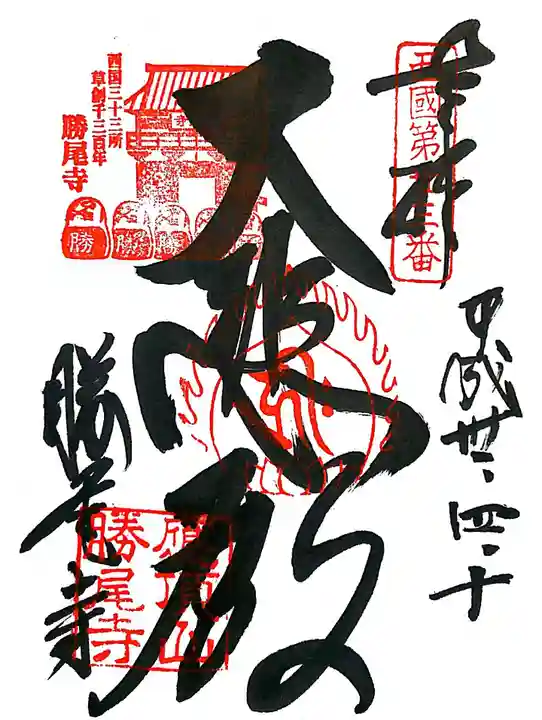 奉拝
西國第廿三番
平成卅一、四、十
大悲殿
西国三十三所
草創千三百年
勝尾寺
勝
勝
勝
勝尾寺
應頂山
勝尾寺